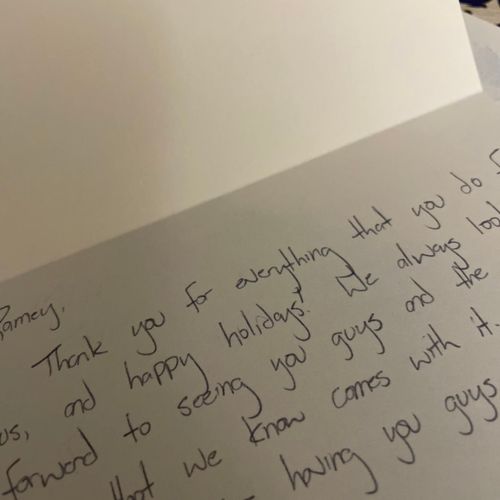 Ramey,
Thank you for everything that you do
us, and happy holidays! We always
forward to seeing you guys and the
that we know comes with it.
having you guys